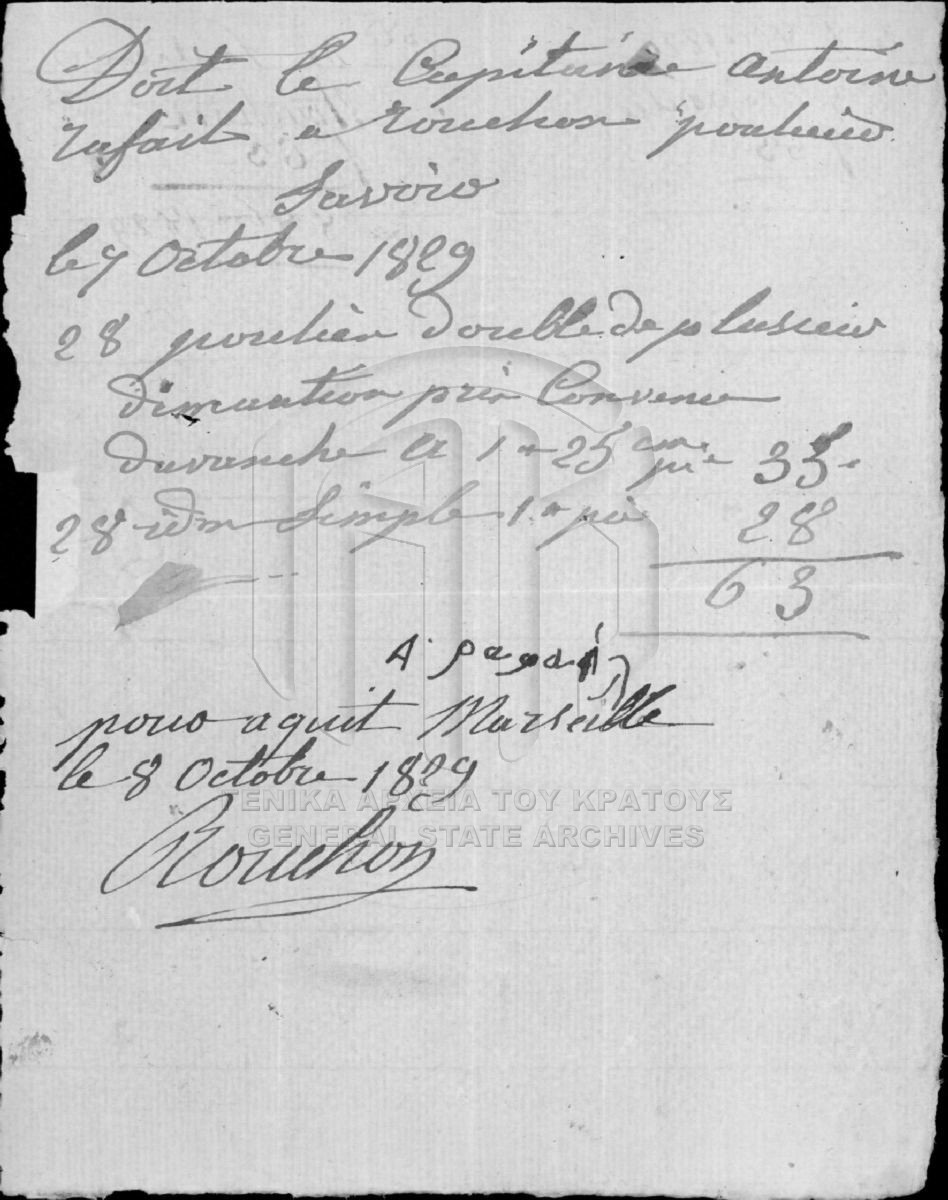 Doit le Capitaine antoine
rafait a rouchon poulieur
Savoir
le 7 Octobre 1829
28 poulien double de plusieur
dimantion prix Convenu
davanche a 1 25 cme pie 35
28 idm Simple 1 pie 28
63
A
pour aquit Marseille
le 8 Octobre 1829
ΓΕΝΙΚΑ ΑΡΧΕΙΑ ΤΟΥ ΚΡΑΤΟΥΣ
GENERAL STATE ARCHIVES
Rouchon